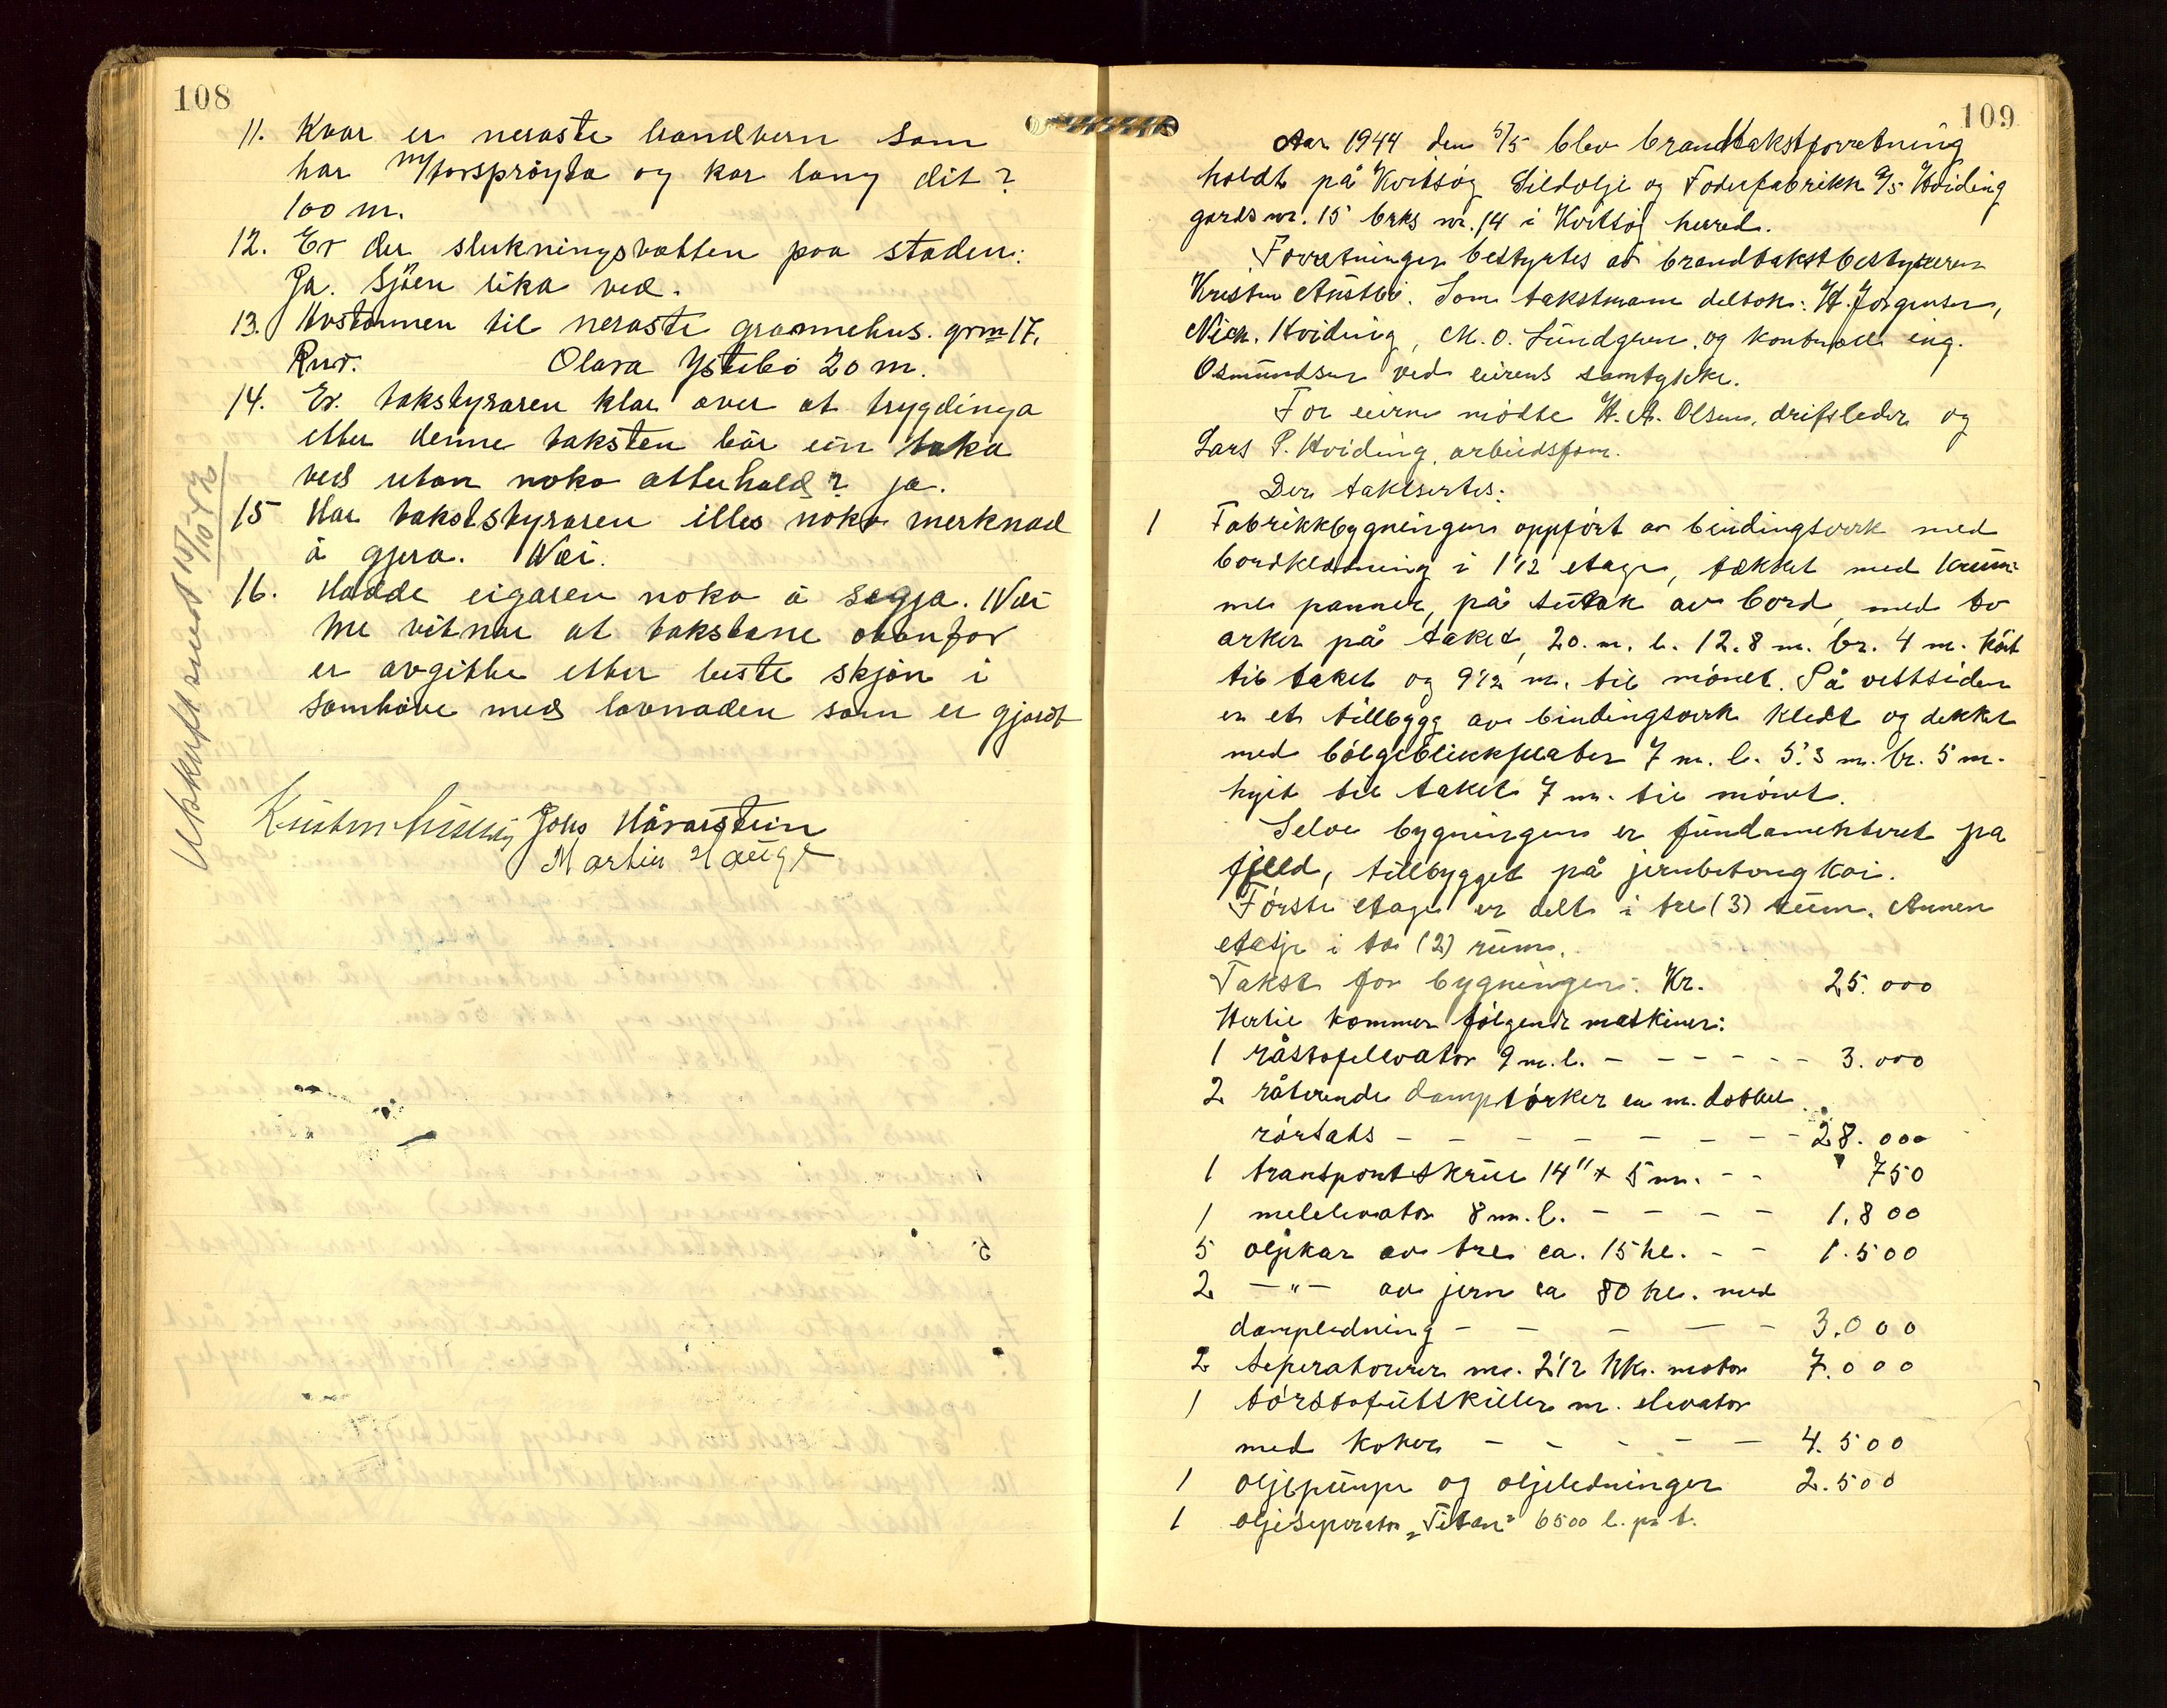 108
11. Kvar er neraste brandvern som
har m/torsprøyta og kor lang dit?
100 m.
12. Er der slukningsvatten paa staden:
Ja. Sjøen lika ved.
13. Avstannen til neraste grannehus. grm 17.
Rnr. Olava Ystebö 20 m.
14. Er takstyraren klar over at trygdinga
etter denne taksten bör ein taka
ved utan noko atterhald? ja.
15 Har takststyraren elles noko merknad
å gjera. Nei.
16. Hadde eigaren noko å segja. Nei
Me vitnar at takstane ovanfor
er avgitte etter beste skjön i
samhöve med lovnaden som er gjordt
Utskrift sendt 15/10-42
Kristen Austbø Johs Håvarstein
Martin Hauge
109
Aar 1944 den 5/5 blev brandtakstforretning
holdt på Kvitsøy Sildolje og Foderfabrikk A/S Hviding
gards nr. 15 brks nr. 14 i Kvitsøy herred.
Forretningen bestyrtes av brandtakstbestyreren
Kristen Austbö. Som takstmann deltok: H. Jørgensen,
Nick. Hviding, M. O. Lundgren, og kontroll ing.
Osmundsen ved eierens samtykke.
For eierne mödte H. A. Olsen, driftsleder og
Lars P. Hviding, arbeidsform.
Der taksertes:
1 Fabrikkbygningen oppfört av bindingsverk med
bordkledning i 1 1/2 etage, tækket med krum-
me panner, på sutak av bord, med to
arker på taket, 20. m. l. 12.8 m. br. 4 m. höit
til taket og 9 1/2 m. til mönet. På vestsiden
er et tillbygg av bindingsverk kledt og dekket
med bölgeblikkplater 7 m. l. 5.3 m. br. 5 m.
høit til taket 7 m. til mönet.
Selve bygningen er fundamenteret på
fjeld, tillbygget på jernbetong kai.
Förste etage er delt i tre (3) rum. Annen
etasje i to (2) rum.
Takst for bygningen: Kr. 25.000
Hertil kommer fölgende maskiner:
1 råstofelevator 9 m. l. - - - - - - 3.000
2 roterende damptörker en m. dobbel
rörsats - - - - - - - - 28.000
1 transportskrue 14" x 5 m. - - 750
1 melelevator 8 m. l. - - - - - 1.800
5 oljekar av tre ca. 15 hl. - - 1.500
2 -"- av jern ca 80 hl. med
dampledning - - - - - 3.000
2 seperatorer m. 2 1/2 hk. motor 7.000
1 törstofutskiller m. elevator
med koker - - - - - 4.500
1 oljepumpe og oljeledninger 2.500
1 oljeseperator "Titan" 6500 l. pr t.